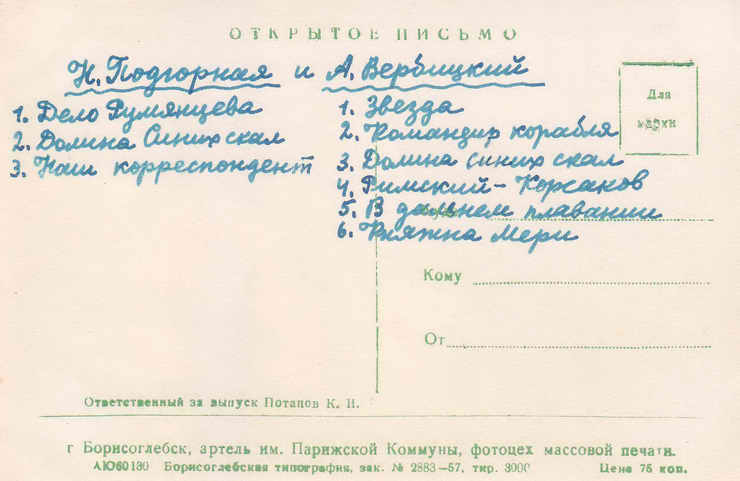 ОТКРЫТОЕ ПИСЬМО
Н. Подгорная и А. Вербицкий
1. Дело Румянцева
2. Долина Синих скал
3. Наш корреспондент
1. Звезда
2. Командир корабля
3. Долина синих скал
4. Римский-Корсаков
5. В дальнем плавании
6. Княжна Мери
Для
марки
Кому
От
Ответственный за выпуск Потапов К. И.
г Борисоглебск, артель им. Парижской Коммуны, фотоцех массовой печати.
АЮ60130 Борисоглебская типография, зак. № 2883-57, тир. 3000 Цена 75 коп.